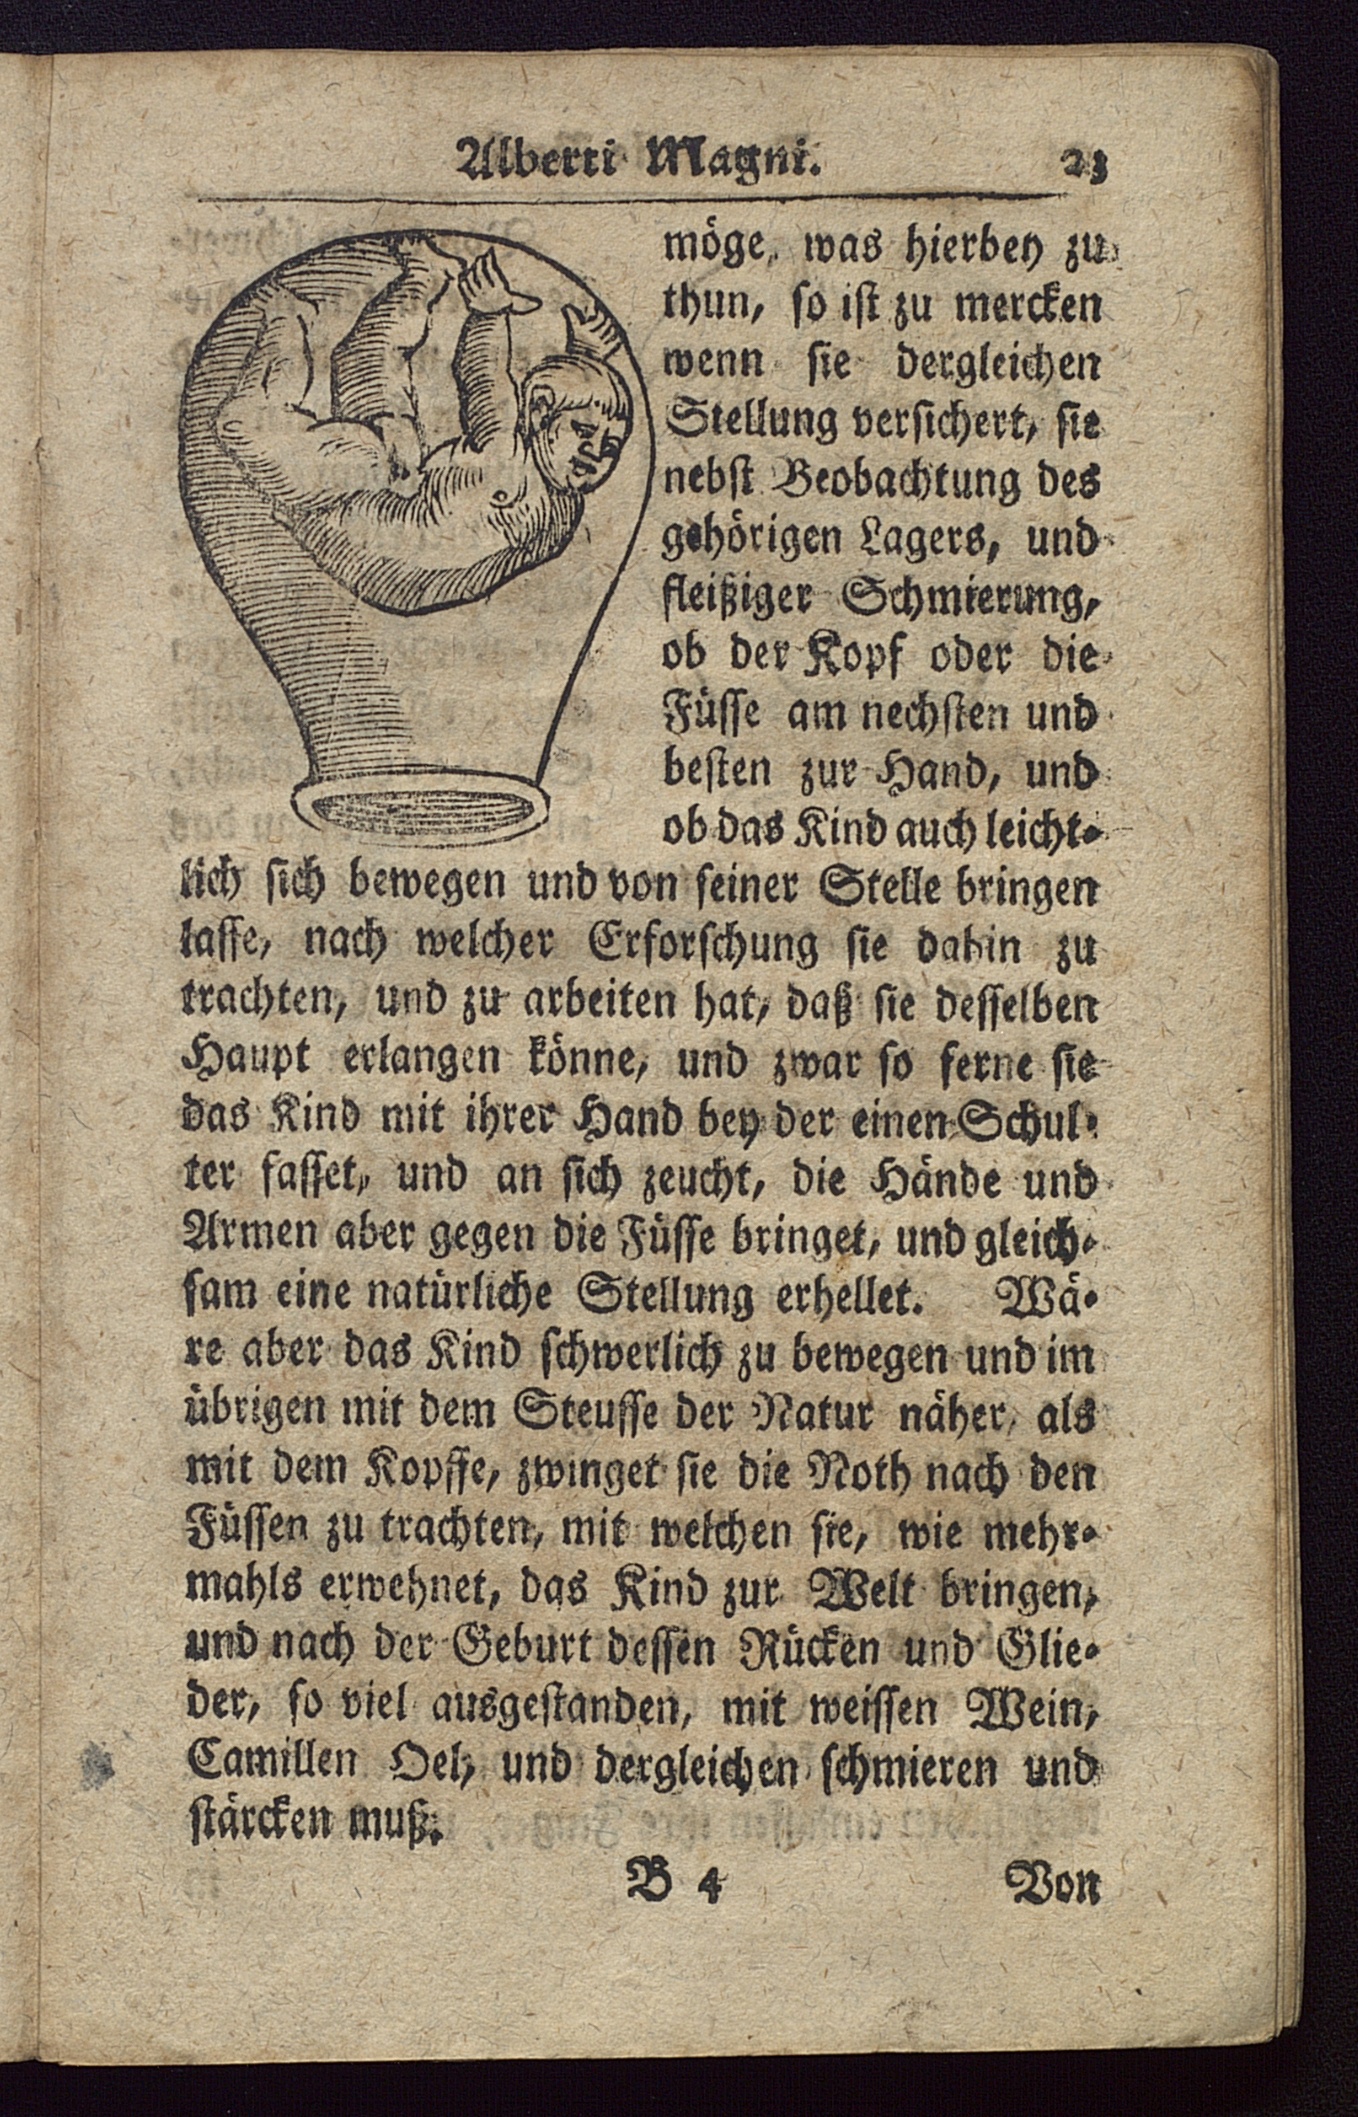 Alberti Magni. 23
möge, was hierbey zu
thun, so ist zu mercken
wenn sie dergleichen
Stellung versichert, sie
nebst Beobachtung des
gehörigen Lagers, und
fleißiger Schmierung,
ob der Kopf oder die
Füsse am nechsten und
besten zur Hand, und
ob das Kind auch leicht-
lich sich bewegen und von seiner Stelle bringen
lasse, nach welcher Erforschung sie dahin zu
trachten, und zu arbeiten hat, daß sie desselben
Haupt erlangen könne, und zwar so ferne sie
das Kind mit ihrer Hand bey der einen Schul-
ter fasset, und an sich zeucht, die Hände und
Armen aber gegen die Füsse bringet, und gleich-
sam eine natürliche Stellung erhellet. Wä-
re aber das Kind schwerlich zu bewegen und im
übrigen mit dem Steusse der Natur näher, als
mit dem Kopffe, zwinget sie die Noth nach den
Füssen zu trachten, mit welchen sie, wie mehr-
mahls erwehnet, das Kind zur Welt bringen,
und nach der Geburt dessen Rücken und Glie-
der, so viel ausgestanden, mit weissen Wein,
Camillen Oel, und dergleichen schmieren und
stärcken muß.
B 4 Von